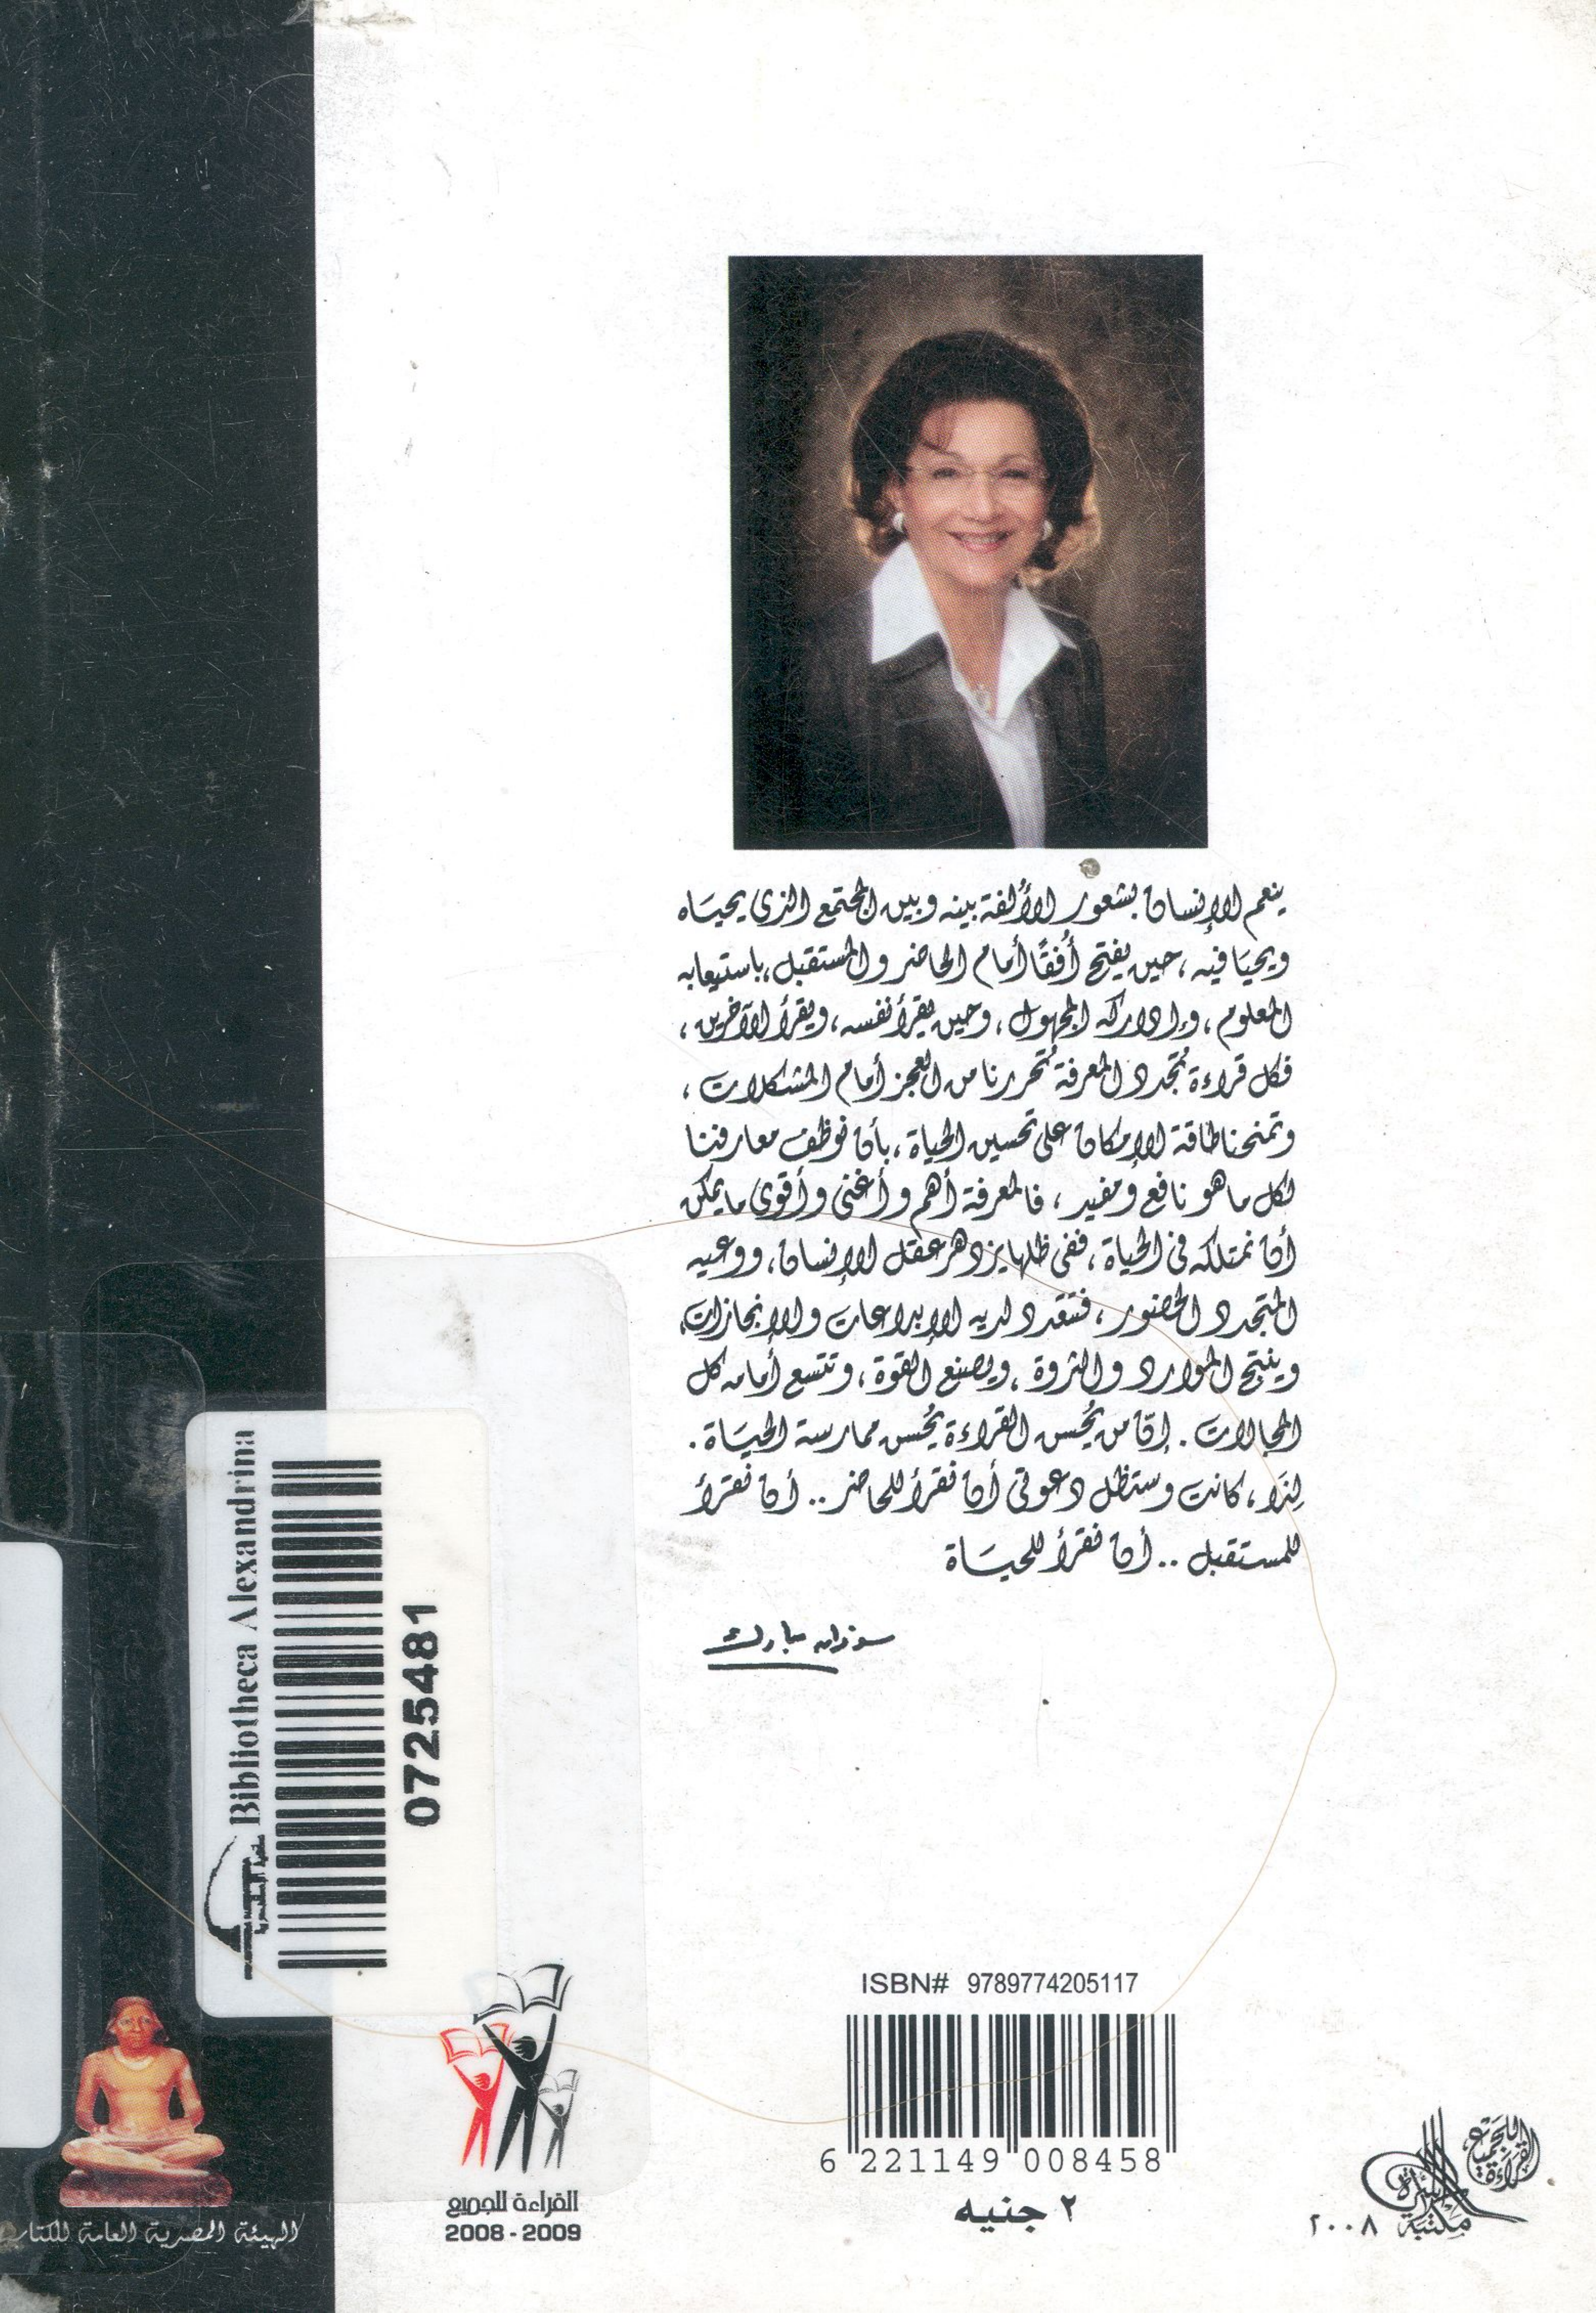 ينعم الإنسان بشعور الألفة بينه وبين المجتمع الذى يحياه
ويحيا فيه، حين يفتح أُفقًا أمام الحاضر والمستقبل، باستيعابه
المعلوم، وإدراكه المجهول، وحين يقرأ نفسه، ويقرأ الآخرين،
فكل قراءة تُجدد المعرفة تُحررنا من العجز أمام المشكلات،
وتمنحنا طاقة الإمكان على تحسين الحياة، بأن نوظف معارفنا
لكل ما هو نافع ومفيد، فالمعرفة أهم وأغنى وأقوى ما يمكن
أن نمتلكه فى الحياة، ففى ظلها يزدهر عقل الإنسان، ووعيه
المتجدد الحضور، فتتعدد لديه الإبداعات والإنجازات،
وينتج الموارد والثروة، ويصنع القوة، وتتسع أمامه كل
المجالات. إنّ من يُحسن القراءة يُحسن ممارسة الحياة.
لِذَا، كانت وستظل دعوتى أن نقرأ للحاضر.. أن نقرأ
للمستقبل.. أن نقرأ للحياة
سوزان مبارك
Bibliotheca Alexandrina
مكتبة الإسكندرية
0725481
ISBN# 9789774205117
6 221149 008458
٢ جنيه
القراءة للجميع
2008 - 2009
الهيئة المصرية العامة للكتاب
القراءة للجميع
مكتبة الأسرة
٢٠٠٨